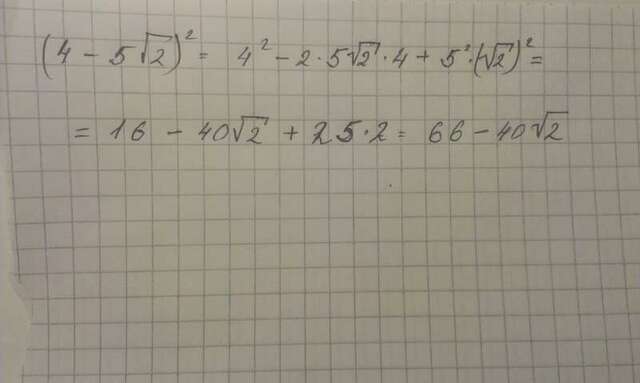 (4 - 5√2)² = 4² - 2·5√2·4 + 5²·(√2)² =
= 16 - 40√2 + 25·2 = 66 - 40√2